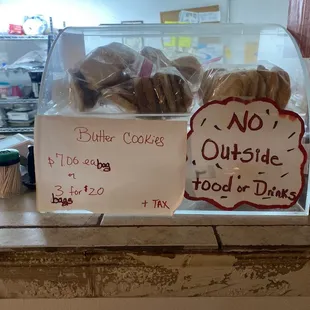 Butter Cookies
$7.00 ea bag
or
3 for $20
bags
+ TAX
NO
Outside
food or Drinks